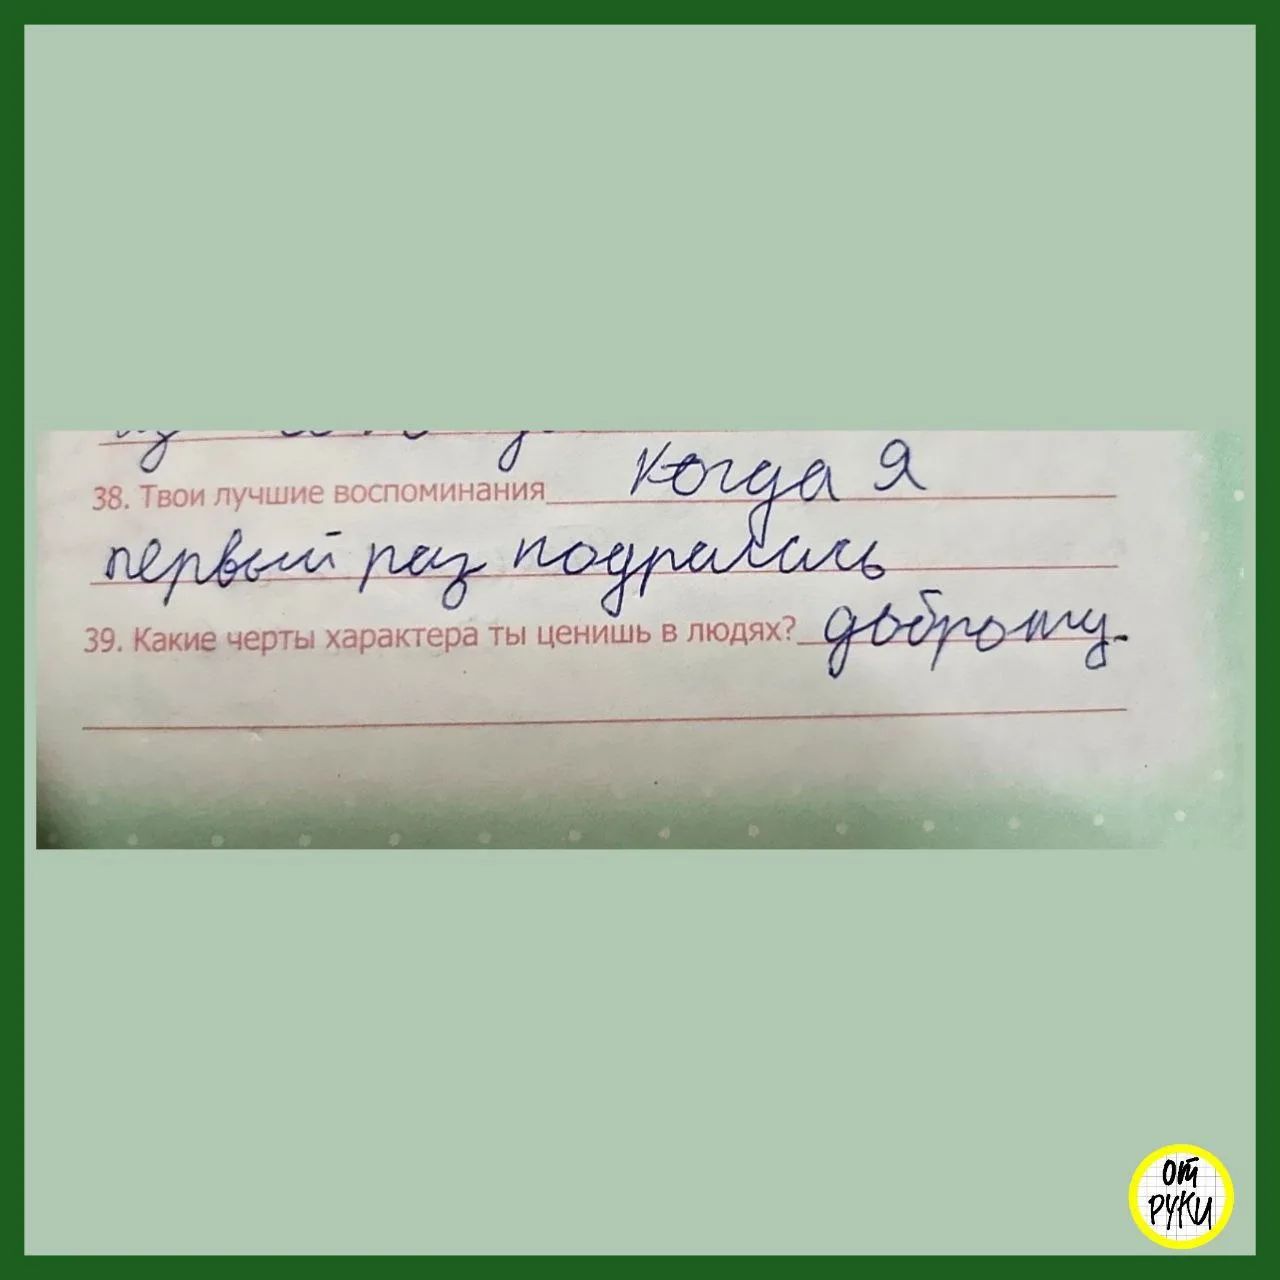 38. Твои лучшие воспоминания Когда я
первый раз подралась
39. Какие черты характера ты ценишь в людях? доброту.
ОТ
РУКИ